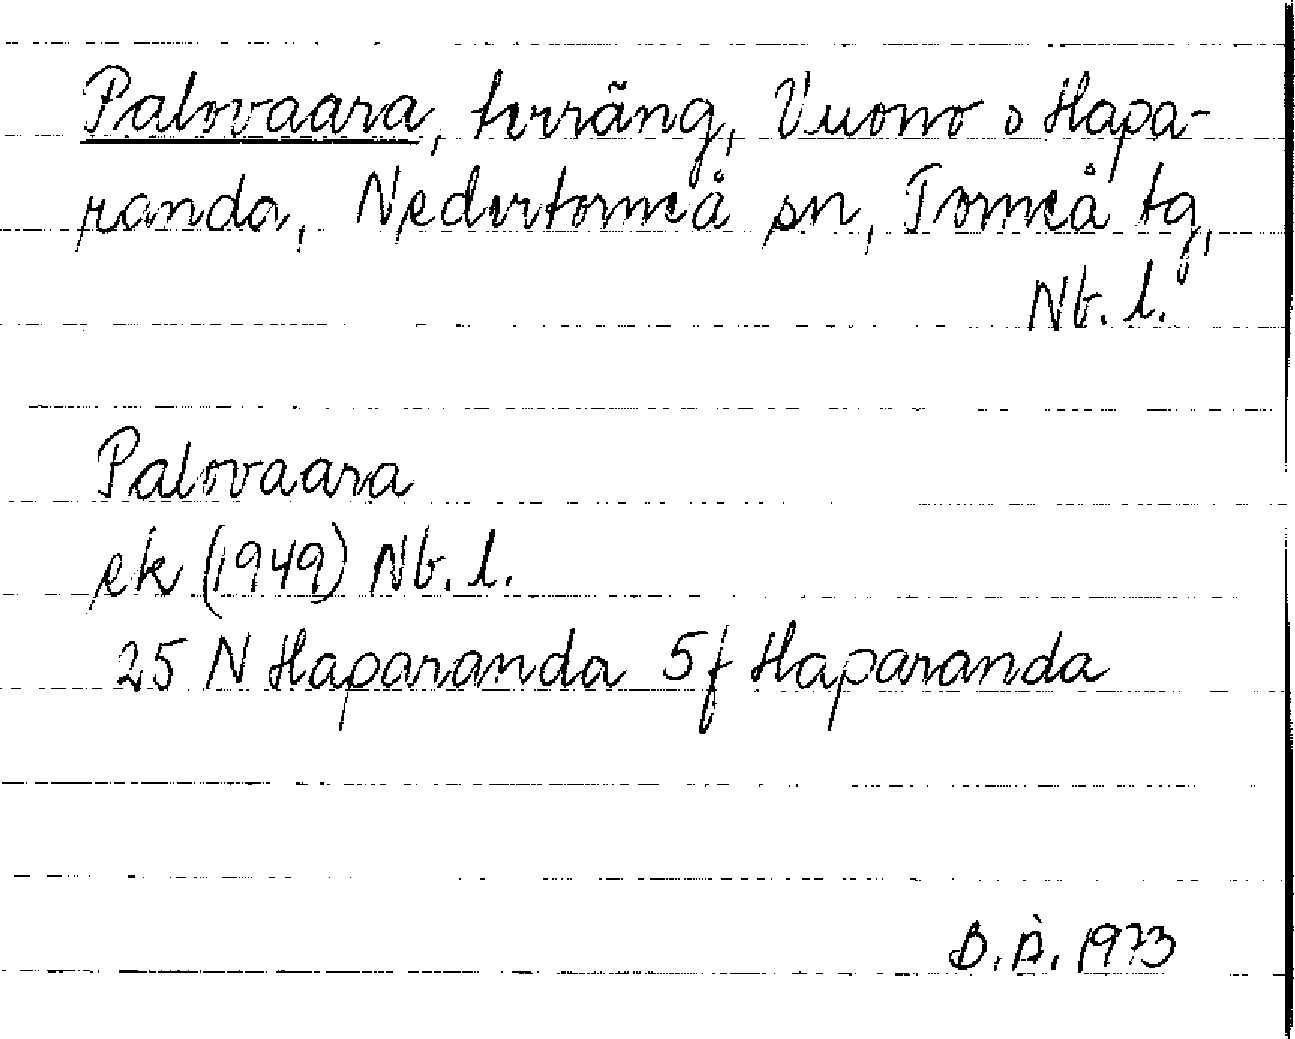 Palovaara, terräng, Vuono o Hapa-
randa, Nedertorneå sn, Torneå tg,
Nb. l.
Palovaara
ek (1949) Nb. l.
25 N Haparanda 5f Haparanda
B.Å. 1973